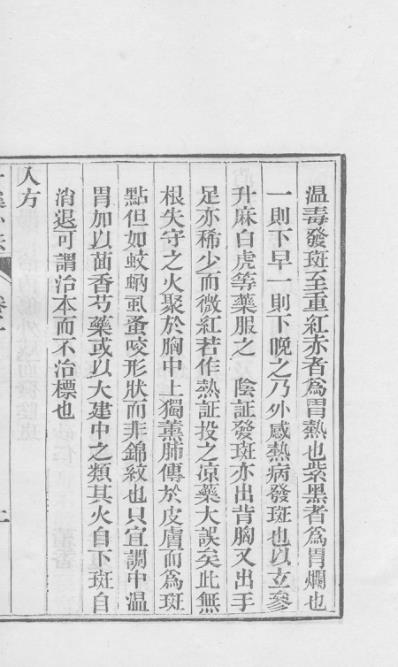 温毒發斑至重紅赤者爲胃熱也紫黑者爲胃爛也
一則下早一則下晚之乃外感熱病發斑也以玄參
升麻白虎等藥服之 陰証發斑亦出背胸又出手
足亦稀少而微紅若作熱証投之凉藥大誤矣此無
根失守之火聚於胸中上獨薰肺傳於皮膚而爲斑
點但如蚊蚋虱蚤咬形狀而非錦紋也只宜調中温
胃加以茴香芍藥或以大建中之類其火自下斑自
消退可謂治本而不治標也
入方